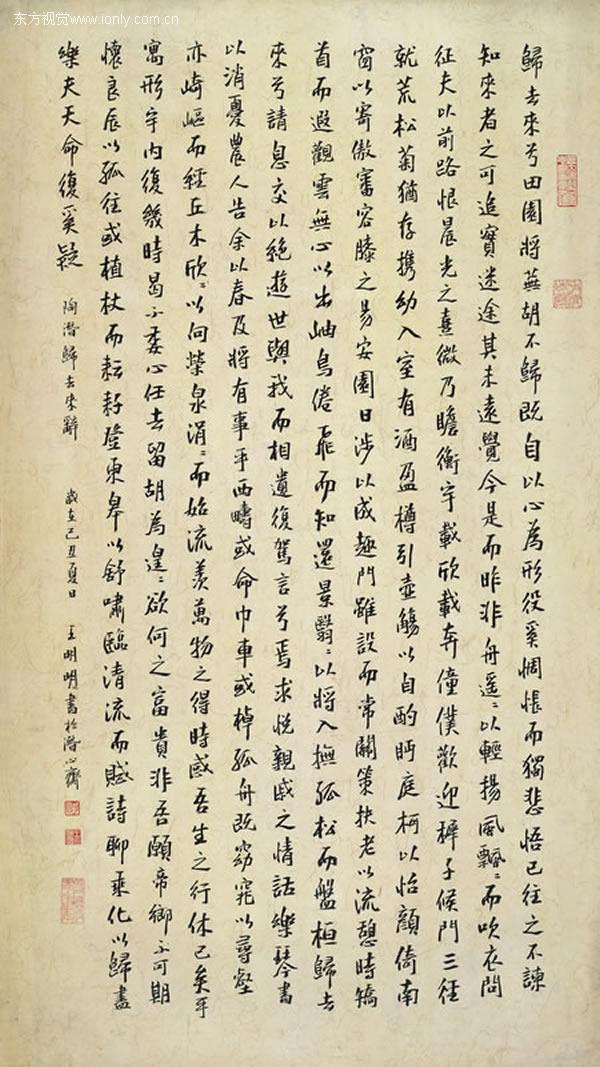 东方视觉 www.ionly.com.cn
歸去來兮田園將蕪胡不歸既自以心為形役奚惆悵而獨悲悟已往之不諫
知來者之可追實迷途其未遠覺今是而昨非舟遥〻以輕揚風飄〻而吹衣問
征夫以前路恨晨光之熹微乃瞻衡宇載欣載奔僮僕歡迎稚子候門三徑
就荒松菊猶存携幼入室有酒盈樽引壺觴以自酌眄庭柯以怡顏倚南
窗以寄傲審容膝之易安園日涉以成趣門雖設而常關策扶老以流憩時矯
首而遐觀雲無心以出岫鳥倦飛而知還景翳〻以將入撫孤松而盤桓歸去
來兮請息交以絕遊世與我而相遺復駕言兮焉求悅親戚之情話樂琴書
以消憂農人告余以春及將有事乎西疇或命巾車或棹孤舟既窈窕以尋壑
亦崎嶇而經丘木欣〻以向榮泉涓〻而始流羨萬物之得時感吾生之行休已矣乎
寓形宇內復幾時曷不委心任去留胡為遑〻欲何之富貴非吾願帝鄉不可期
懷良辰以孤往或植杖而耘耔登東皋以舒嘯臨清流而賦詩聊乘化以歸盡
樂夫天命復奚疑
陶潛歸去來辭 歲在己丑夏日 王明明書於潛心齋